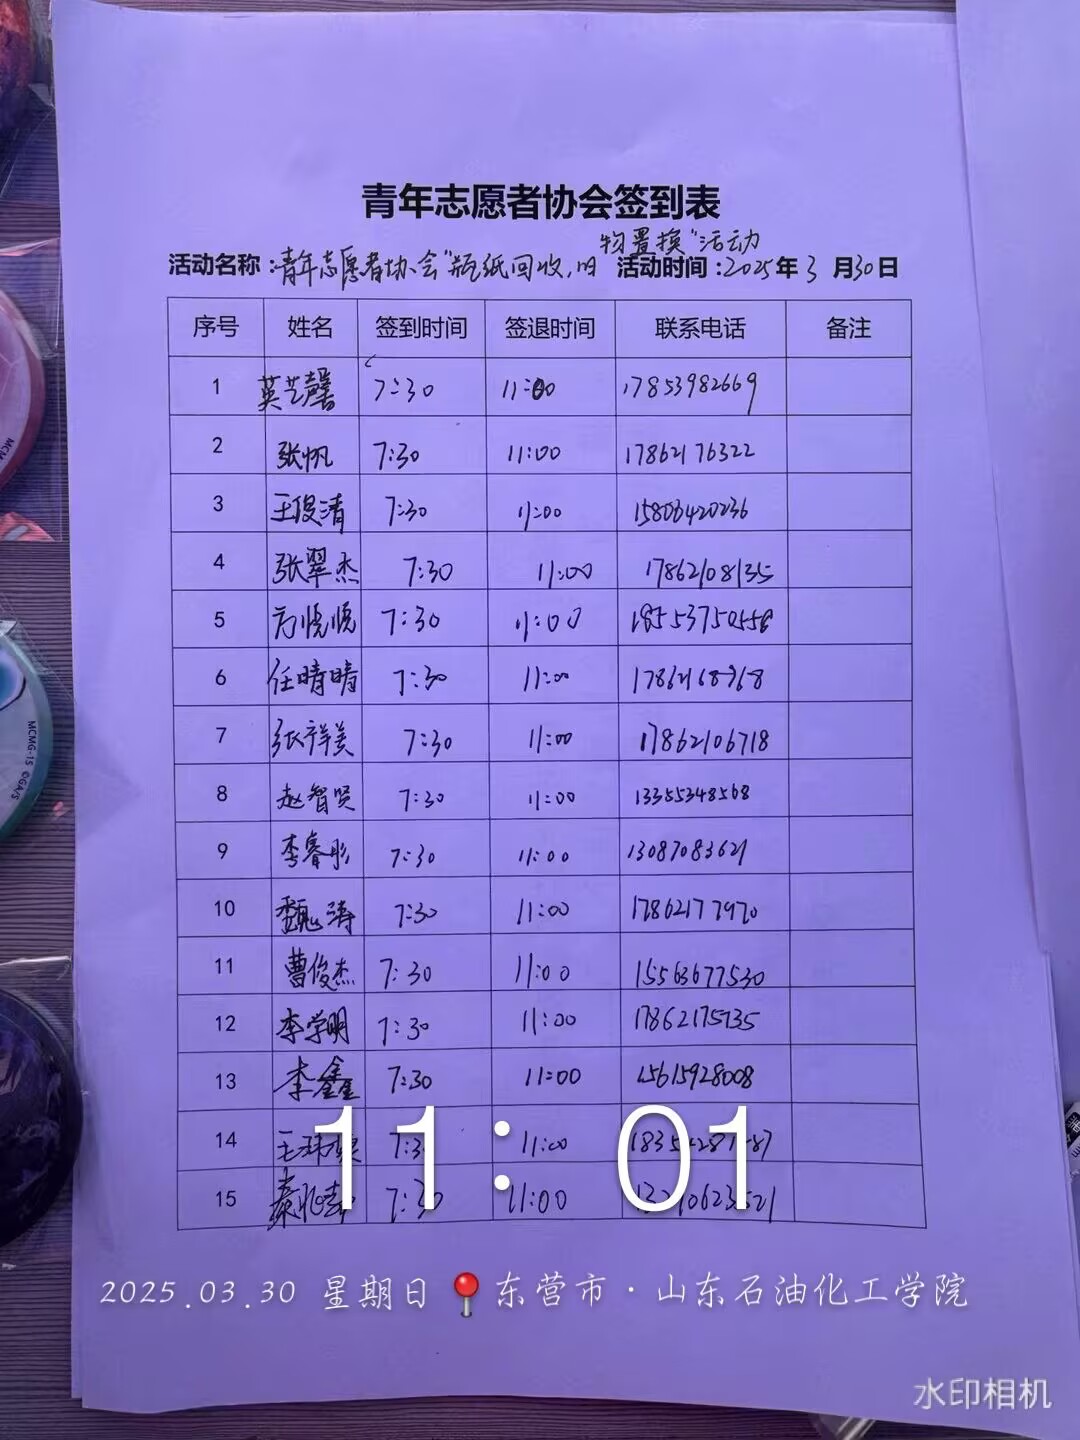 青年志愿者协会签到表
物置换"活动
活动名称:青年志愿者协会"瓶纸回收,旧 活动时间:2025年3月30日
序号 姓名 签到时间 签退时间 联系电话 备注
1 英艺馨 7:30 11:00 17853982669
2 张帆 7:30 11:00 17862176322
3 王俊清 7:30 11:00 15806420236
4 张翠杰 7:30 11:00 17862108135
5 7:30 11:00 18553750558
6 任晴晴 7:30 11:00 17862168968
7 张祥美 7:30 11:00 17862106718
8 赵智贤 7:30 11:00 13355348568
9 李睿彤 7:30 11:00 13087083621
10 魏涛 7:30 11:00 17862177970
11 曹俊杰 7:30 11:00 15563677530
12 李学明 7:30 11:00 17862175735
13 李鑫 7:30 11:00 15615928008
14 7:30 11:00
15 7:30 11:00
11:01
2025.03.30 星期日 东营市·山东石油化工学院
水印相机
MCMG-15 ©GA/S
MCM